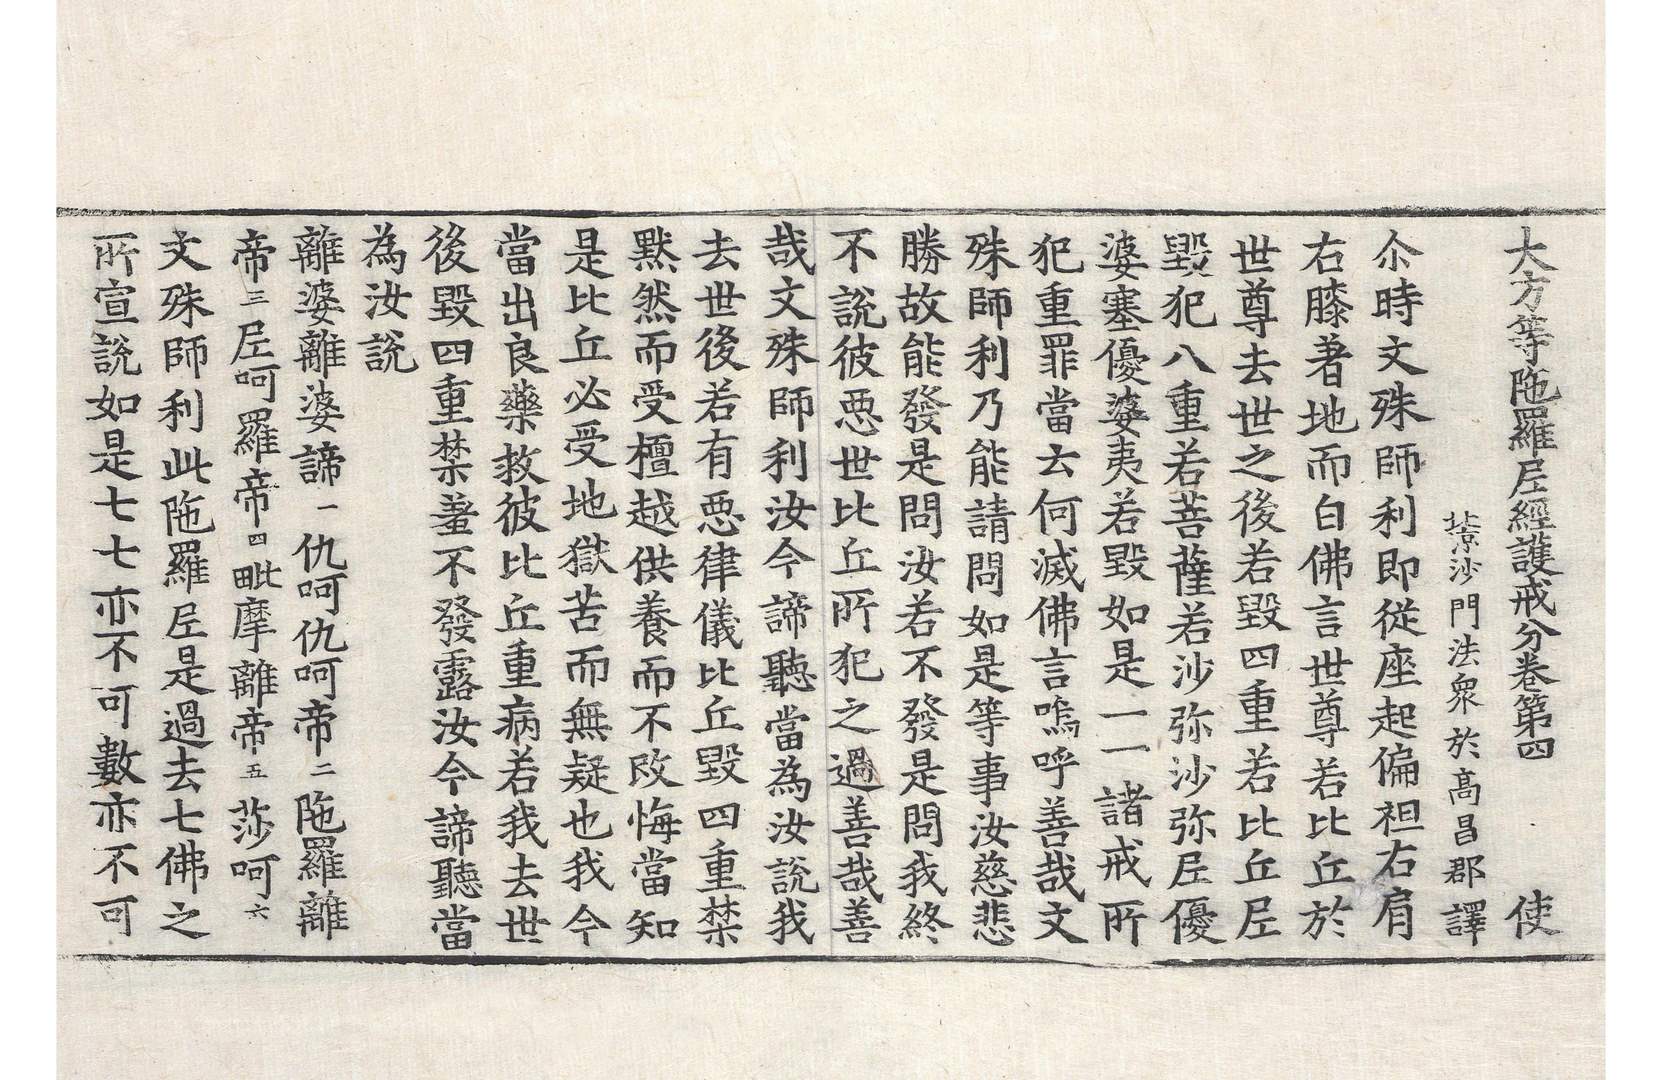 大方等陁羅尼經護戒分卷第四 使
北凉沙門法衆於髙昌郡譯
尒時文殊師利即從座起偏袒右肩
右膝著地而白佛言世尊若比丘於
世尊去世之後若毀四重若比丘尼
毀犯八重若菩薩若沙弥沙弥尼優
婆塞優婆夷若毀如是一一諸戒所
犯重罪當云何滅佛言嗚呼善哉文
殊師利乃能請問如是等事汝慈悲
勝故能發是問汝若不發是問我終
不說彼惡世比丘所犯之過善哉善
哉文殊師利汝今諦聽當為汝說我
去世後若有惡律儀比丘毀四重禁
默然而受檀越供養而不改悔當知
是比丘必受地獄苦而無疑也我今
當出良藥救彼比丘重病若我去世
後毀四重禁羞不發露汝今諦聽當
為汝說
離婆離婆諦一仇呵仇呵帝二陁羅離
帝三尼呵羅帝四毗摩離帝五莎呵六
文殊師利此陁羅尼是過去七佛之
所宣說如是七七亦不可數亦不可